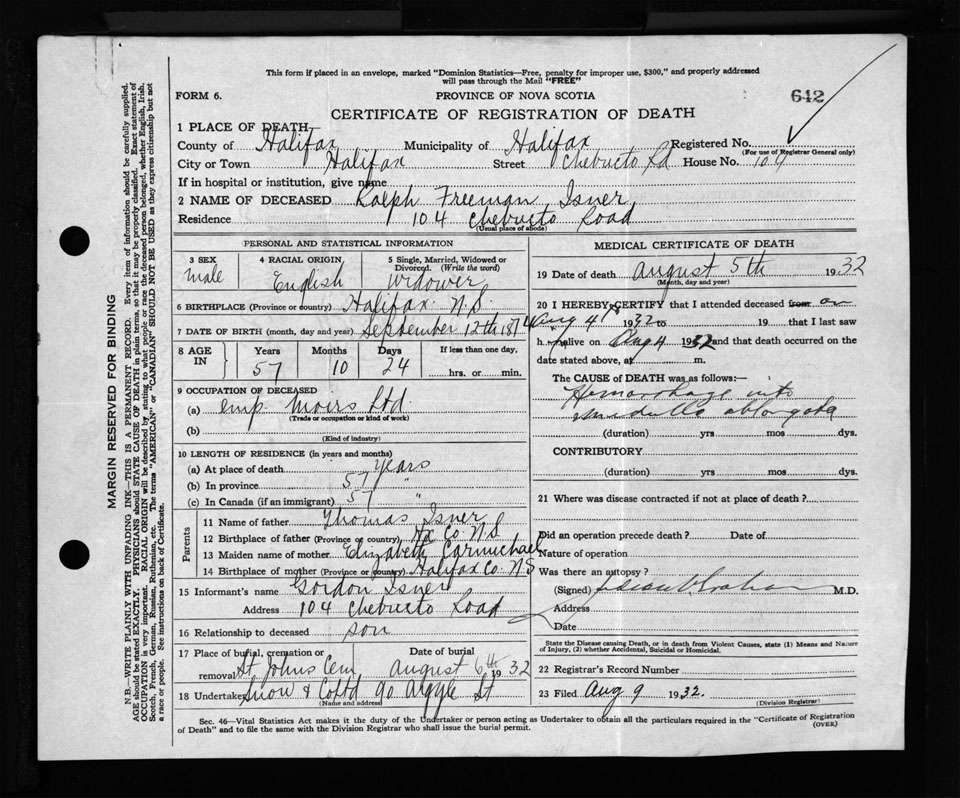 This form if placed in an envelope, marked "Dominion Statistics—Free, penalty for improper use, $300," and properly addressed
will pass through the Mail "FREE"
FORM 6.
PROVINCE OF NOVA SCOTIA
642
CERTIFICATE OF REGISTRATION OF DEATH
1 PLACE OF DEATH
County of Halifax Municipality of Halifax Registered No.
(For use of Registrar General only)
City or Town Halifax Street Chebucto Rd House No. 104
If in hospital or institution, give name
2 NAME OF DECEASED Ralph Freeman Isner
Residence 104 Chebucto Road
(Usual place of abode)
PERSONAL AND STATISTICAL INFORMATION
3 SEX 4 RACIAL ORIGIN 5 Single, Married, Widowed or
Divorced. (Write the word)
Male English Widower
6 BIRTHPLACE (Province or country) Halifax N.S.
7 DATE OF BIRTH (month, day and year) September 12th 1874
8 AGE IN Years Months Days If less than one day,
57 10 24 hrs. or min.
9 OCCUPATION OF DECEASED
(a) emp. Moirs Ltd.
(Trade or occupation or kind of work)
(b)
(Kind of industry)
10 LENGTH OF RESIDENCE (in years and months)
(a) At place of death 57 years
(b) In province 57 "
(c) In Canada (if an immigrant)
Parents
11 Name of father Thomas Isner
12 Birthplace of father (Province or country) Hx Co. N.S
13 Maiden name of mother Elizabeth Carmichael
14 Birthplace of mother (Province or country) Halifax Co. N.S
15 Informant's name Gordon Isner
Address 104 Chebucto Road
16 Relationship to deceased son
17 Place of burial, cremation or Date of burial
removal St Johns Cem August 6th 1932
18 Undertaker Snow & Co Ltd 90 Argyle St
(Name and address)
MEDICAL CERTIFICATE OF DEATH
19 Date of death August 5th 1932
(Month, day and year)
20 I HEREBY CERTIFY that I attended deceased from on
Aug 4th 1932 to 19 that I last saw
h im alive on Aug 4 1932 and that death occurred on the
date stated above, at m.
The CAUSE of DEATH was as follows:
Hemorrhage into
medulla oblongata
(duration) yrs mos dys.
CONTRIBUTORY
(duration) yrs mos dys.
21 Where was disease contracted if not at place of death?
Did an operation precede death? Date of
Nature of operation
Was there an autopsy?
(Signed) M.D.
Address
Date
State the Disease causing Death, or in death from Violent Causes, state (1) Means and Nature
of Injury, (2) whether Accidental, Suicidal or Homicidal.
22 Registrar's Record Number
23 Filed Aug 9 1932.
(Division Registrar)
Sec. 46—Vital Statistics Act makes it the duty of the Undertaker or person acting as Undertaker to obtain all the particulars required in the "Certificate of Registration
of Death" and to file the same with the Division Registrar who shall issue the burial permit.
(OVER)
MARGIN RESERVED FOR BINDING
N.B.—WRITE PLAINLY WITH UNFADING INK—THIS IS A PERMANENT RECORD. Every item of information should be carefully supplied.
AGE should be stated EXACTLY. PHYSICIANS should STATE CAUSE OF DEATH in plain terms, so that it may be properly classified. Exact statement of
OCCUPATION is very important. RACIAL ORIGIN will be described by stating to what people or race the deceased person belonged, whether English, Irish,
Scotch, French, German, Russian, Ruthenian, etc. The terms "AMERICAN" or "CANADIAN" SHOULD NOT BE USED as they express citizenship but not
a race or people. See instructions on back of Certificate.